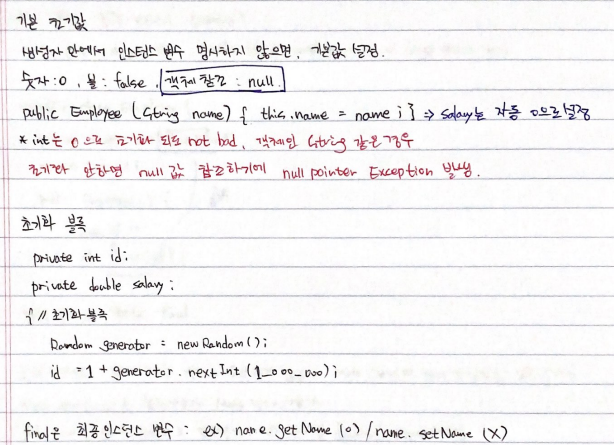 기본 초기값
생성자 안에서 인스턴스 변수 명시하지 않으면, 기본값 설정.
숫자 : 0, 불 : false, 객체 참조 : null.
public Employee (String name) { this.name = name ; } ⇒ salary는 자동 0으로 설정
* int는 0으로 초기화 되도 not bad, 객체인 String 같은 경우
초기화 안하면 null 값 참조하기에 null pointer Exception 발생.
초기화 블록
private int id;
private double salary ;
{ // 초기화 블록
Random generator = new Random();
id = 1 + generator. nextInt (1_000_000);
final은 최종 인스턴스 변수 : ex) name. getName (O) / name. setName (X)